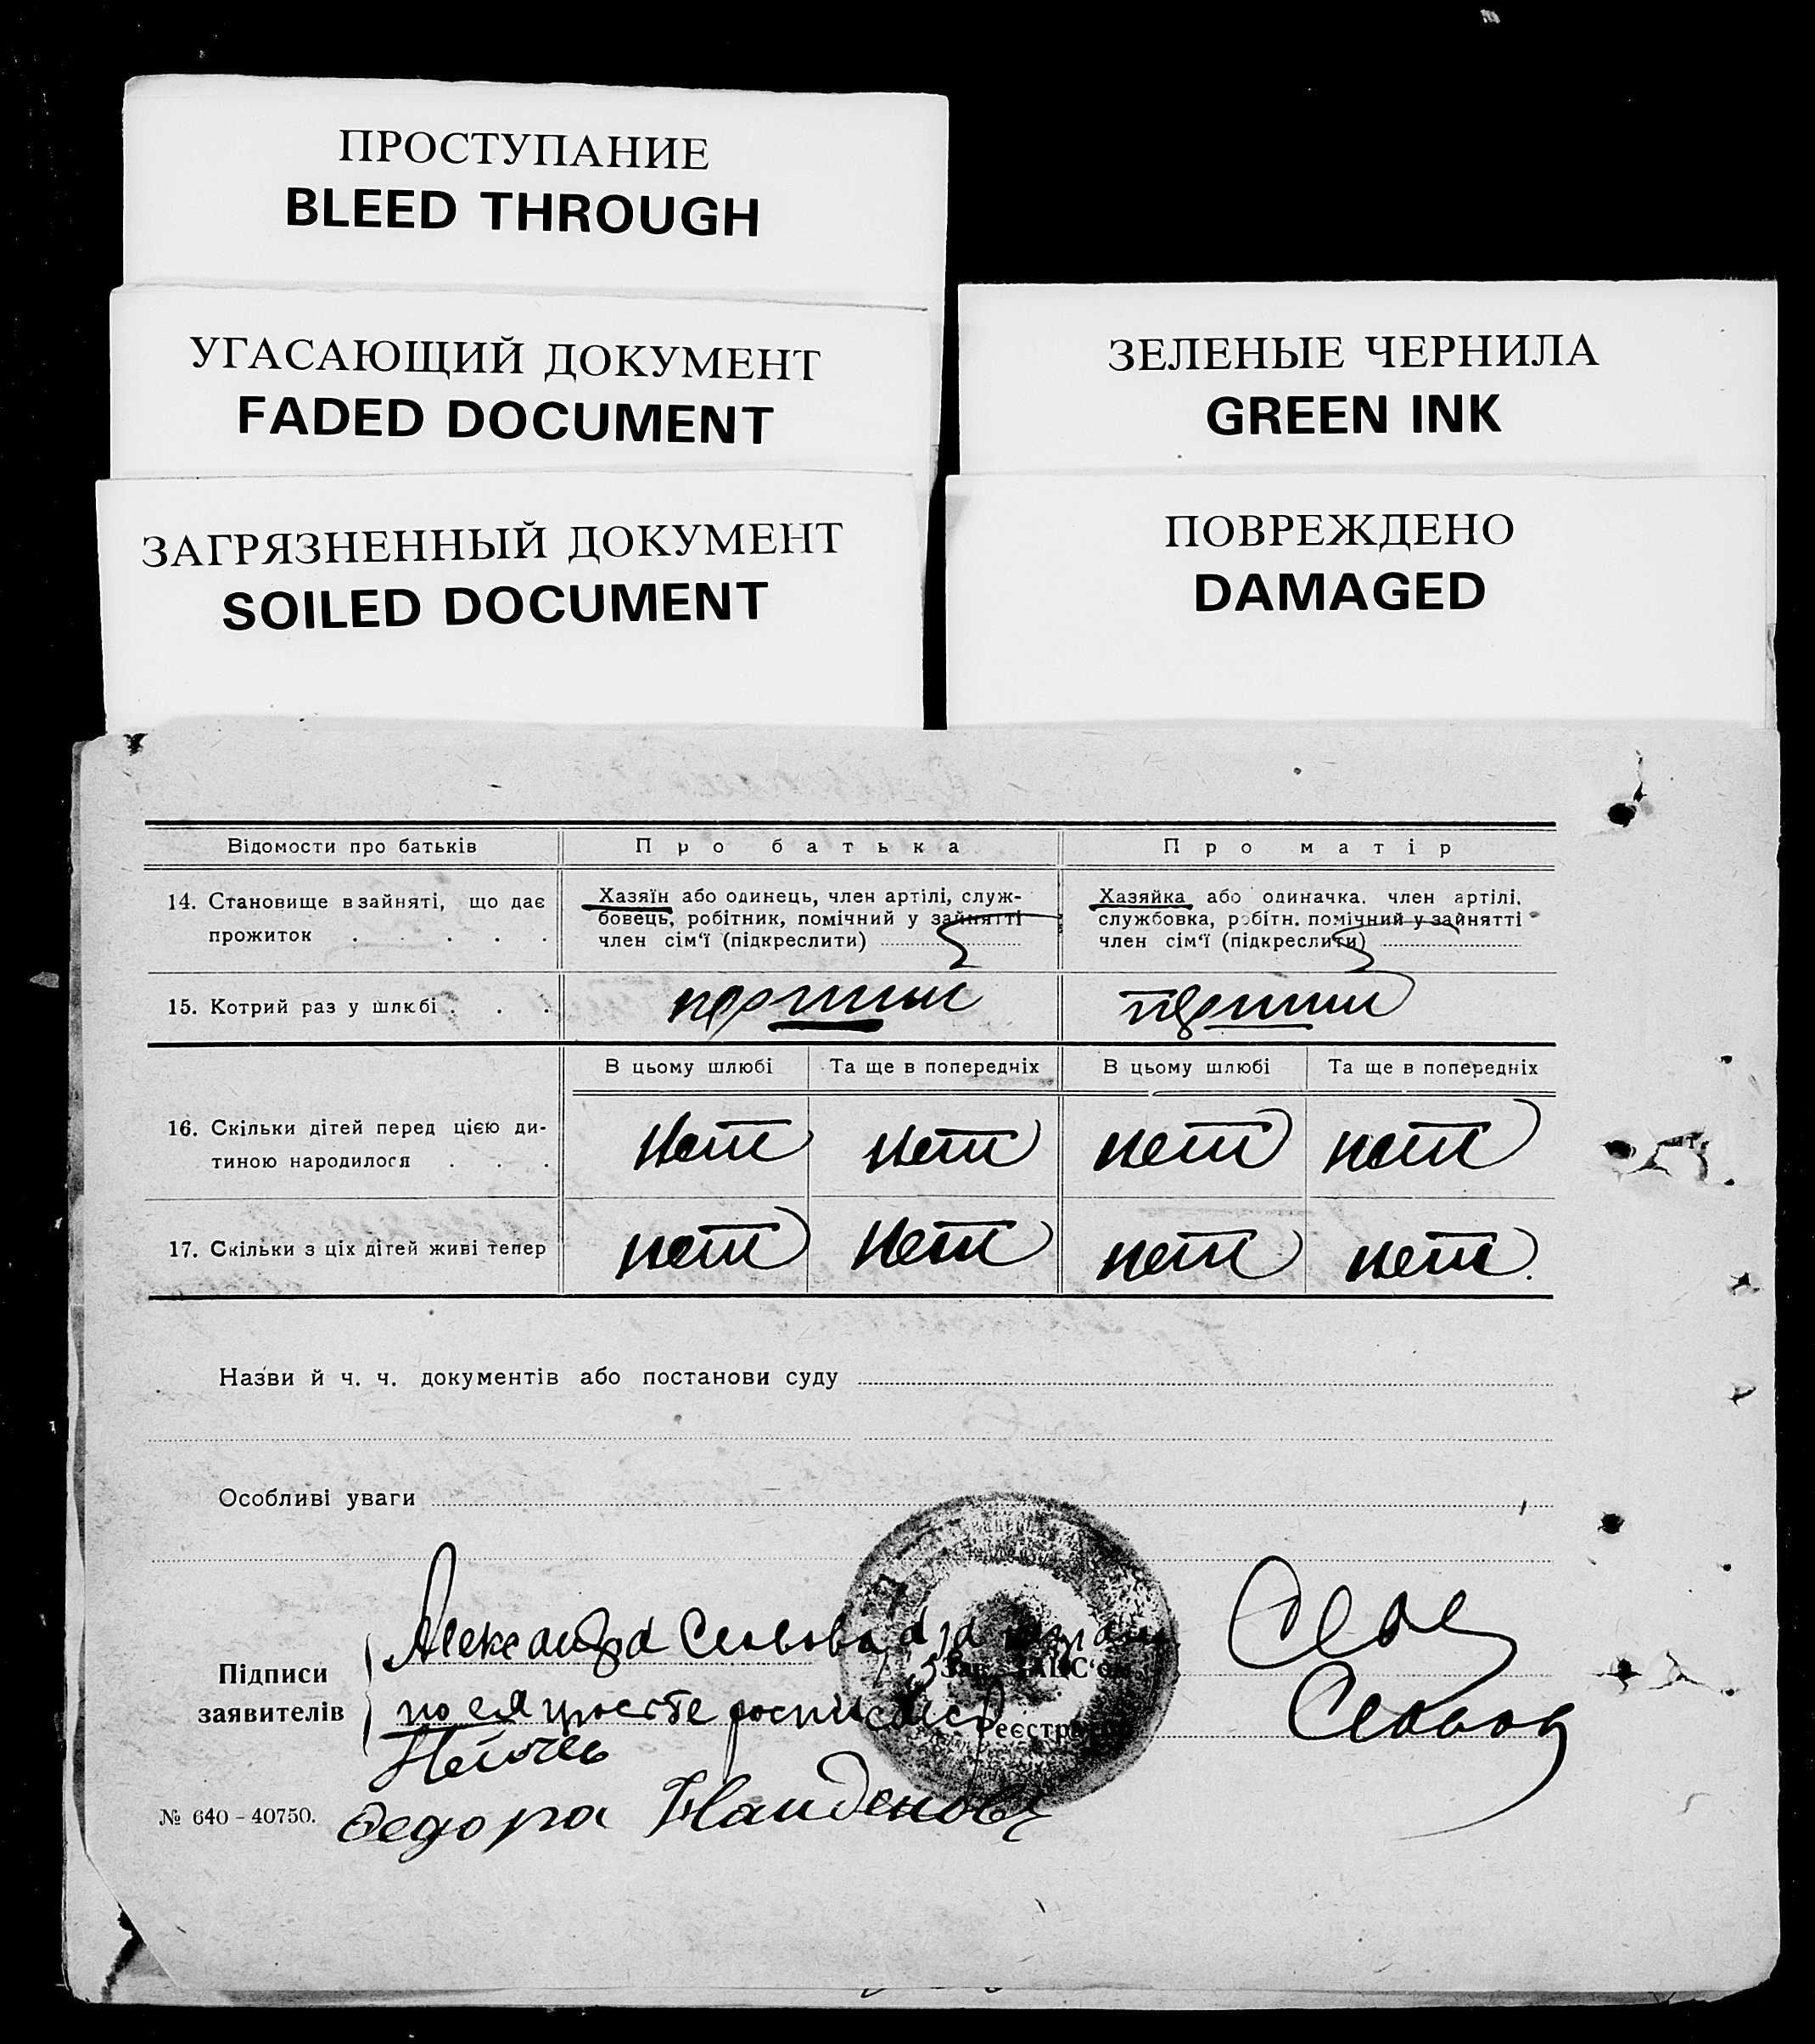 ПРОСТУПАНИЕ
BLEED THROUGH
УГАСАЮЩИЙ ДОКУМЕНТ
FADED DOCUMENT
ЗЕЛЕНЫЕ ЧЕРНИЛА
GREEN INK
ЗАГРЯЗНЕННЫЙ ДОКУМЕНТ
SOILED DOCUMENT
ПОВРЕЖДЕНО
DAMAGED
Відомости про батьків Про батька Про матір
14. Становище в зайняті, що дає
прожиток
Хазяїн або одинець, член артілі, служ-
бовець, робітник, помічний у зайнятті
член сім'ї (підкреслити)
Хазяйка або одиначка, член артілі,
службовка, робітн. помічний у зайнятті
член сім'ї (підкреслити)
15. Котрий раз у шлюбі первий первий
В цьому шлюбі Та ще в попередніх В цьому шлюбі Та ще в попередніх
16. Скільки дітей перед цією ди-
тиною народилося
нет нет нет нет
17. Скільки з ціх дітей живі тепер нет нет нет нет
Назви й ч. ч. документів або постанови суду
Особливі уваги
Александра
Зав. ЗАГС'ом
Підписи
заявителів
по ея
Реєстратор
№ 640-40750.
Федора Найденов